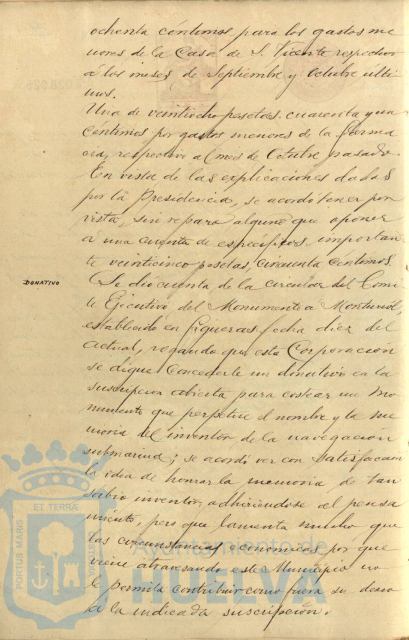 ochenta céntimos para los gastos me
nores de la Casa de S. Vicente respectivos
á los meses de Septiembre y Octubre ulti
mos.
Una de veintiocho pesetas cuarenta y un
céntimos por gastos menores de la Farma
cia, respectivo al mes de Octubre pasado.
En vista de las explicaciones dadas
por la Presidencia, se acordó tener por
vista, sin reparo alguno que oponer
a una cuenta de específicos importan
te veinticinco pesetas, cincuenta céntimos.
DONATIVO
Se dio cuenta de la circular del Comi
té Ejecutivo del Monumento a Monturiol,
establecido en Figueras, fecha diez del
actual, rogando que esta Corporación
se digne concederle un donativo en la
suscripcion abierta para costear un mo
numento que perpetue el nombre y la me
moria del inventor de la navegación
submarina; se acordó ver con satisfaccion
la idea de honrar la memoria de tan
sabio inventor, adhiriéndose al pensa
miento, pero que lamenta mucho que
las circunstancias económicas por que
viene atravesando este Municipio no
le permita contribuir como fuera su deseo
a la indicada suscripción.
PORTUS MARIS ET TERRAE CUSTODIA
Ayuntamiento de
HUELVA